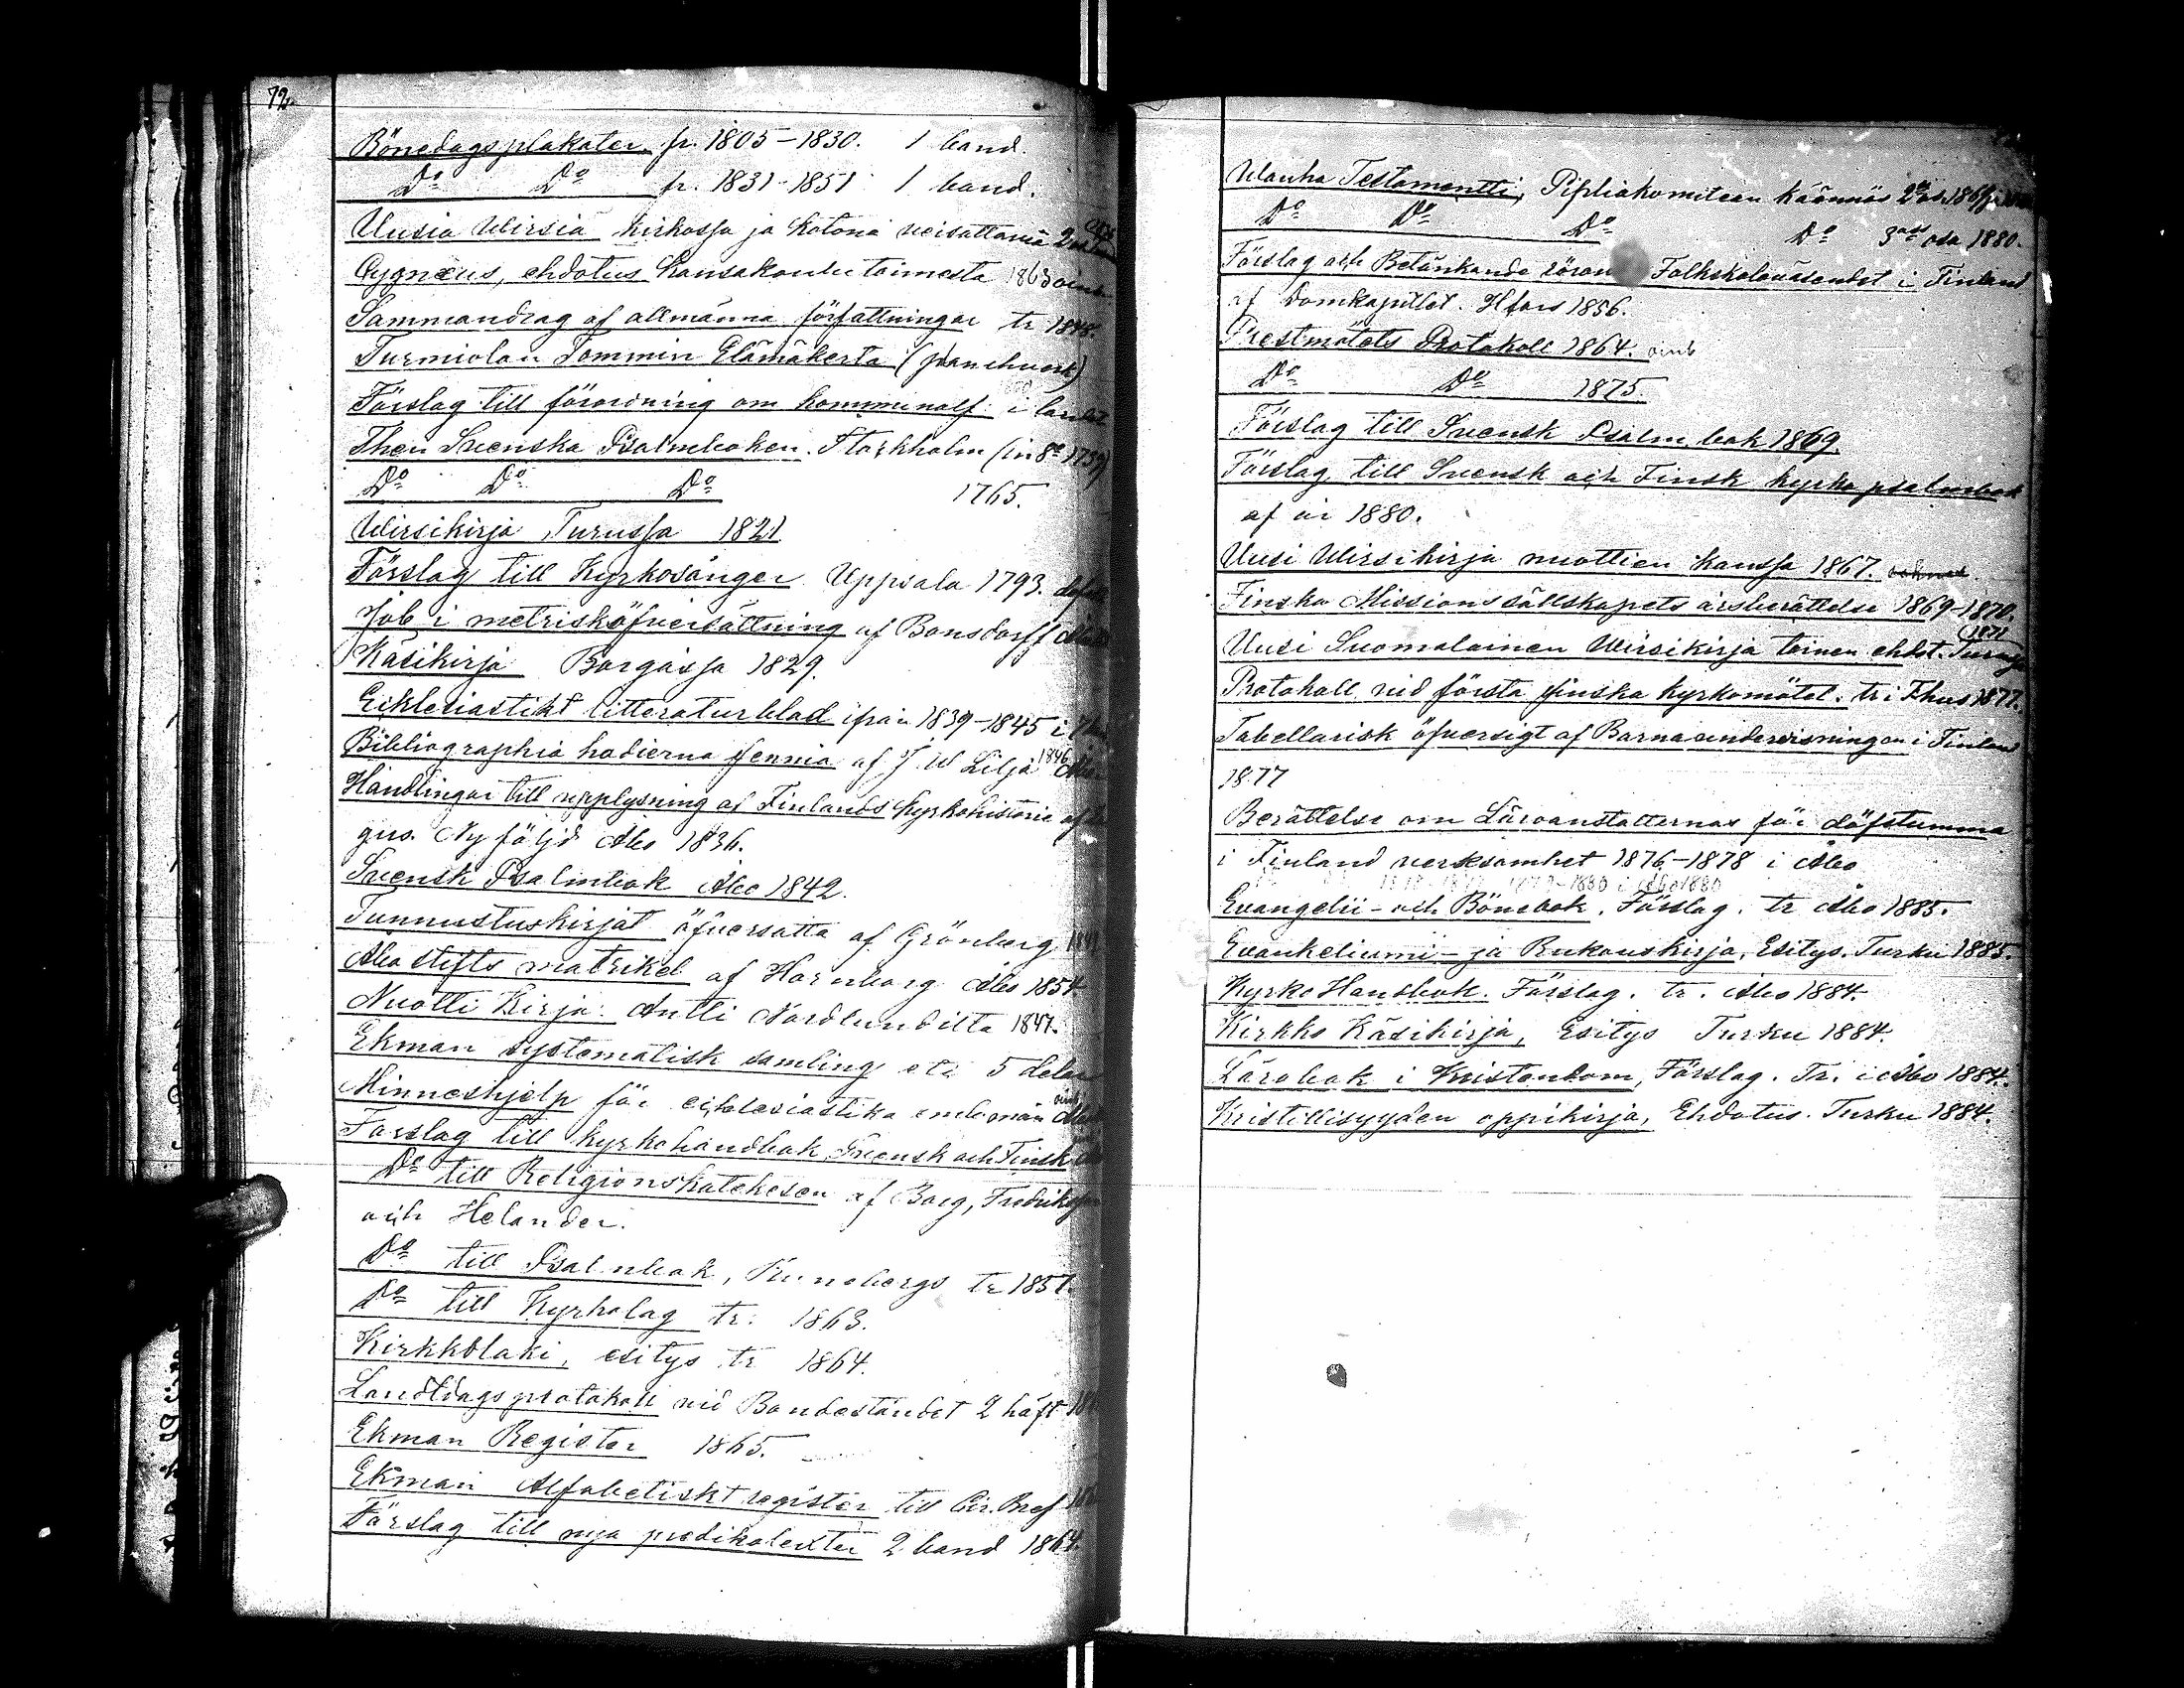 72
Bönedagsplakater fr. 1805-1830. 1 band.
Do Do fr. 1831-1851 1 band.
Uusia Wirsiä kirkossa ja kotona veisattavia
Cygnæus, ehdotus kansakoulu toimesta 1863
Sammandrag af allmänna författningar tr
Turmiolan Tommin Elämäkerta
Förslag till förordning om kommunalf. i landet
Then Svenska Psalmboken. Stockholm (in 8o 1739)
Do Do Do 1765.
Wirsikirja, Turussa 1821
Förslag till Kyrkosånger Uppsala 1793.
Job i metrisk öfversättning af Bonsdorff
Käsikirja Borgåssa 1829.
Ecklesiastikt litteraturblad ifrån 1839-1845 i
Bibliographia hodierna Fennia af J. W Lilja 1846 Åbo
Handlingar till upplysning af Finlands Kyrkohistorie af
gus. Ny följd Åbo 1836.
Svensk Psalmbok Åbo 1842.
Tunnustuskirjat öfversatta af Grönberg
Åbo stifts matrikel af Hornborg Åbo 1854
Nuotti Kirja. Antti Nordlundilta 1847.
Ekman systematisk samling etc 5 delar
Minneshjelp för ecklesiastika embetsmän
Förslag till kyrkohandbok, Svensk och Finsk
Do till Religionskatekesen af Borg, Fredrikson
och Helander.
Do till Psalmbok, Runebergs tr 1857.
Do till Kyrkolag tr. 1863.
Kirkkolaki, esitys tr 1864.
Landtdagsprotokoll vid Bondeståndet 2 häft
Ekman Register 1865.
Ekman Alfabetiskt register till Cir. Bref
Förslag till nya predikotexter 2 band 1864.
Wanha Testamentti, Pipliakomitean käännös
Do Do Do Do 3as osa 1880.
Förslag och Betänkande rörande Folkskoleväsendet i Finland
af Domkapitlet. Hfors 1856.
Prestmötets Protokoll 1864.
Do Do 1875.
Förslag till Svensk Psalmbok 1869.
Förslag till Svensk och Finsk kyrko psalmbok
af år 1880.
Uusi Wirsikirja nuottien kanssa 1867.
Finska Missionssällskapets årsberättelse 1869-1870.
Uusi Suomalainen Wirsikirja toinen ehdot. Turussa 1871
Protokoll vid första finska kyrkomötet. tr i Fhus 1877.
Tabellarisk öfversigt af Barnaundervisningen i Finland
1877
Berättelse om Läroanstalternas för döfstumma
i Finland verksamhet 1876-1878 i Åbo
Evangelii- och Bönebok. Förslag. tr Åbo 1885.
Evankeliumi- ja Rukouskirja, Esitys. Turku 1885.
Kyrko Handbok. Förslag. tr. Åbo 1884.
Kirkko Käsikirja, Esitys Turku 1884.
Lärobok i Kristendom, Förslag. Tr. i Åbo 1884.
Kristillisyyden oppikirja, Ehdotus. Turku 1884.